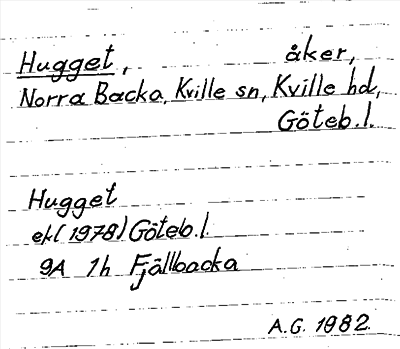 Hugget, åker,
Norra Backa, Kville sn, Kville hd,
Göteb.l.
Hugget
ek (1978) Göteb.l.
9A 1h Fjällbacka
A.G. 1982.